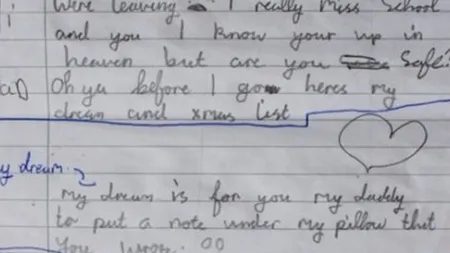 were leaving I really miss School
and you I know your up in
heaven but are you Safe?
Oh ya before I go heres my
dream and xmas list
y dream
my dream is for you my daddy
to put a note under my pillow that
You